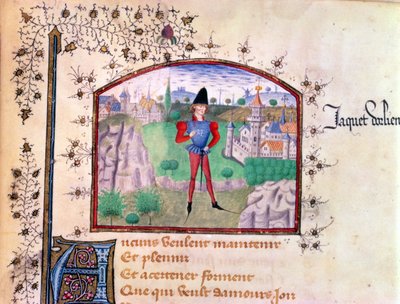 Jaquet dorlien
Aucuns veulent maintenir
Et pleuuir
Et acertener forment
Que qui veult damours Joir